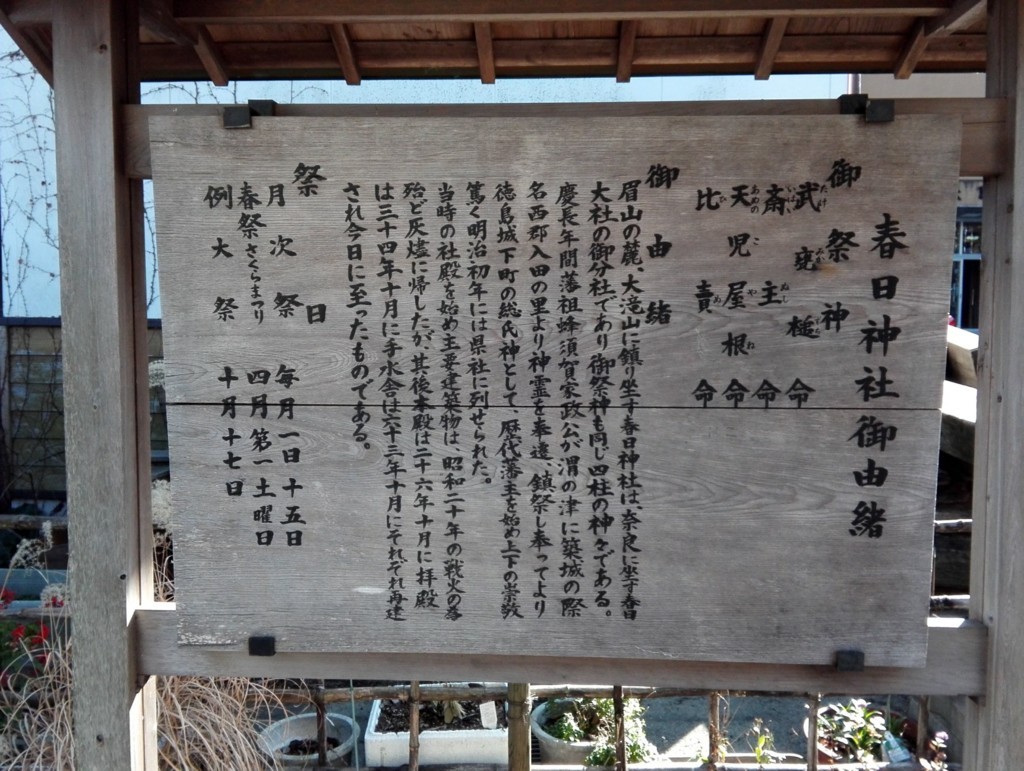 春日神社御由緒
御祭神
武甕槌命
たけみかづち
斎主命
いはひぬし
天児屋根命
あめのこやね
比売命
ひめ
御由緒
眉山の麓、大滝山に鎮り坐す春日神社は、奈良に坐す春日
大社の御分社であり御祭神も同じ四柱の神々である。
慶長年間藩祖蜂須賀家政公が渭の津に築城の際
名西郡入田の里より神霊を奉遷、鎮祭し奉ってより
徳島城下町の総氏神として、歴代藩主を始め上下の崇敬
篤く明治初年には県社に列せられた。
当時の社殿を始め主要建築物は、昭和二十年の戦火の為
殆ど灰燼に帰したが、其後本殿は二十六年十月に拝殿
は三十四年十月に手水舎は六十三年十月にそれぞれ再建
され今日に至ったものである。
祭日
月次祭 毎月一日十五日
春祭さくらまつり 四月第一土曜日
例大祭 十月十七日